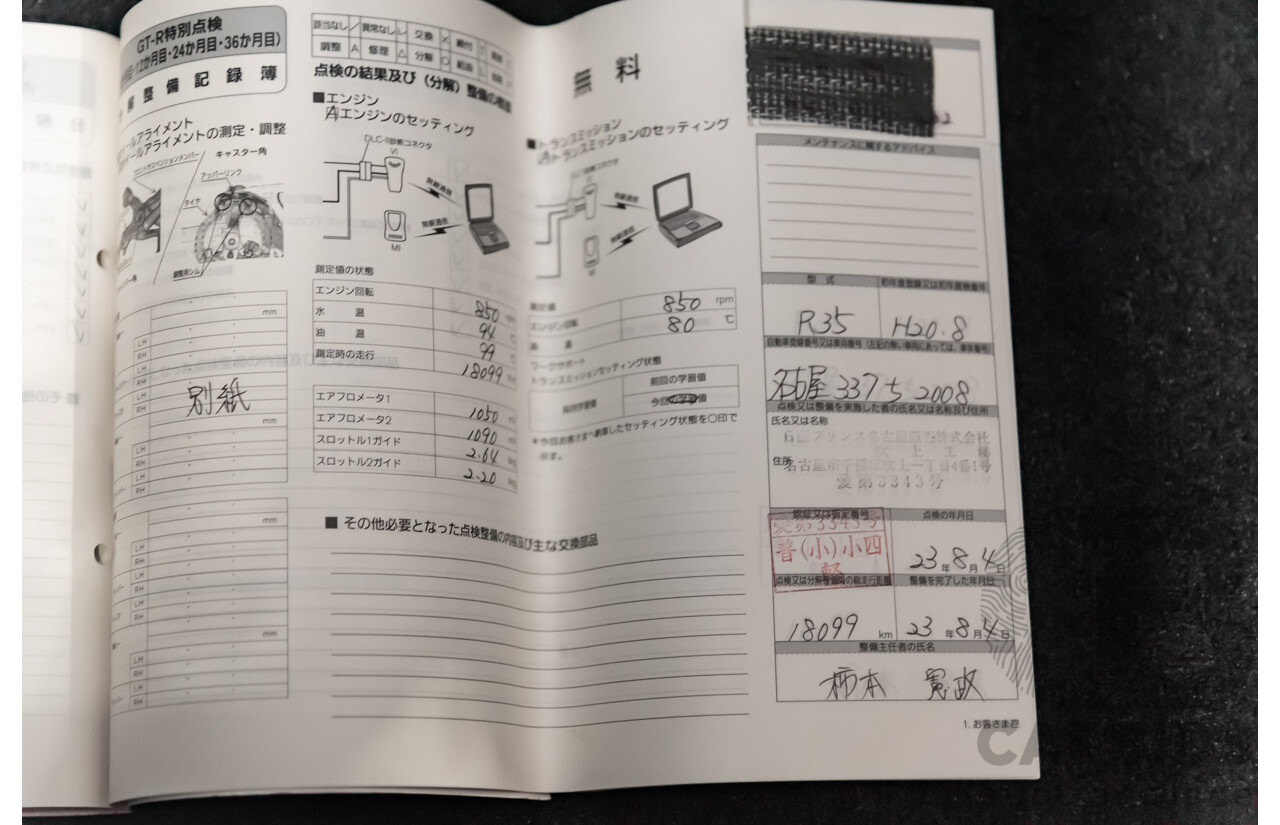 GT-R特別点検
12か月目・24か月目・36か月目)
解整備記録簿
ールアライメント
イールアライメントの測定・調整
キャスター角
フロントサスペンションメンバー
アッパーリンク
タイヤ
調整用シム
mm
LH
RH
LH
RH
LH
RH
別紙
mm
LH
RH
LH
RH
mm
LH
RH
LH
RH
LH
RH
mm
LH
RH
LH
RH
該当なし / 異常なし レ 交換 × 締付 T
調整 A 修理 △ 分解 ○ 給油 L
点検の結果及び(分解)整備の概要
■エンジン
エンジンのセッティング
DLC-II診断コネクタ
VI
無線通信
無線通信
MI
測定値の状態
エンジン回転 850 rpm
水 温 94 ℃
油 温 99 ℃
測定時の走行 18099 km
エアフロメータ1 1050
エアフロメータ2 1090
スロットル1ガイド 2.64
スロットル2ガイド 2.20
■ その他必要となった点検整備の内容及び主な交換部品
無 料
■トランスミッション
トランスミッションのセッティング
無線通信
無線通信
測定値
エンジン回転 850 rpm
油 温 80 ℃
ワークサポート
トランスミッションセッティング状態
採用学習値
前回の学習値
今回の学習値
*今回お客さまへ納車したセッティング状態を○印で
示す。
メンテナンスに関するアドバイス
型 式
初年度登録又は初年度検査年
R35
H20.8
自動車登録番号又は車両番号(左記の無い車両にあっては、車体番号)
名古屋 337 ち 2008
点検又は整備を実施した者の氏名又は名称及び住所
氏名又は名称
日産プリンス名古屋販売株式会社
吹上工場
住所
名古屋市千種区吹上一丁目4番1号
愛第3343号
認証又は指定番号
点検の年月日
愛第3343号
普(小)小四
軽
23年8月4日
点検又は分解整備時の総走行距離
整備を完了した年月日
18099 km
23年8月4日
整備主任者の氏名
柿本
1. お客さま控
CA